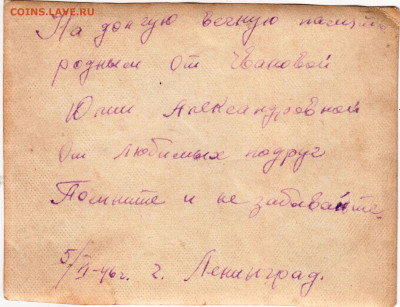 COINS.LAVE.RU
На долгую вечную память
родным от Ивановой
Юлии Александровной
от любимых подруг
Помните и не забывайте.
5/VI-46г. г. Ленинград.